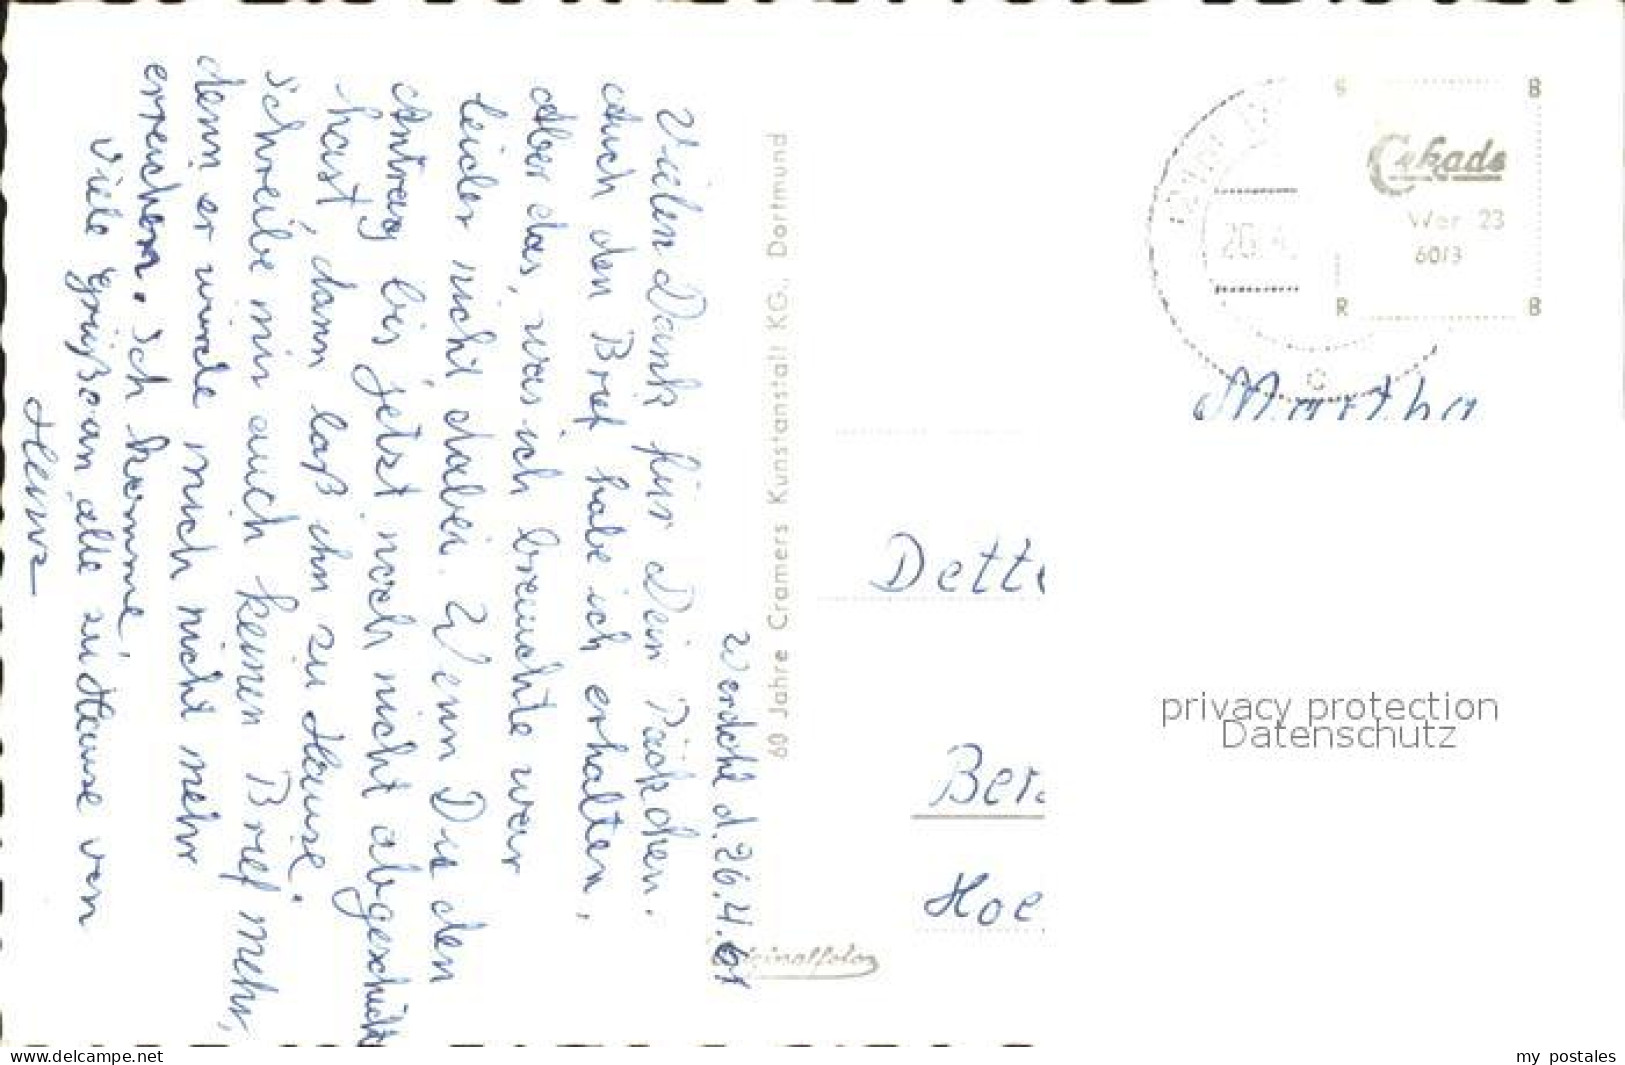 Werdohl d. 26.4.61
Vielen Dank für Dein Päckchen.
Auch den Brief habe ich erhalten,
Aber das, was ich brauchte war
leider nicht dabei. Wenn Du den
Antrag bis jetzt noch nicht abgeschickt
hast, dann laß ihn zu Hause.
Schreibe mir auch keinen Brief mehr,
denn er würde mich nicht mehr
erreichen. Ich komme.
Viele Grüße an alle zu Hause von
Heinz
60 Jahre Cramers Kunstanstalt KG., Dortmund
Cekade
Wer 23
6013
B
R B
Martha
Dett
Ber
Hoe
privacy protection
Datenschutz
www.delcampe.net
my_postales